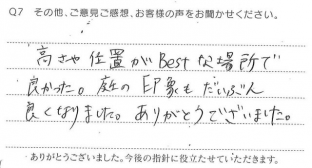 Q7 その他、ご意見ご感想、お客様の声をお聞かせください。
高さや位置がBestな場所で
良かった。庭の印象もだいぶん
良くなりました。ありがとうございました。
ありがとうございました。今後の指針に役立たせていただきます。